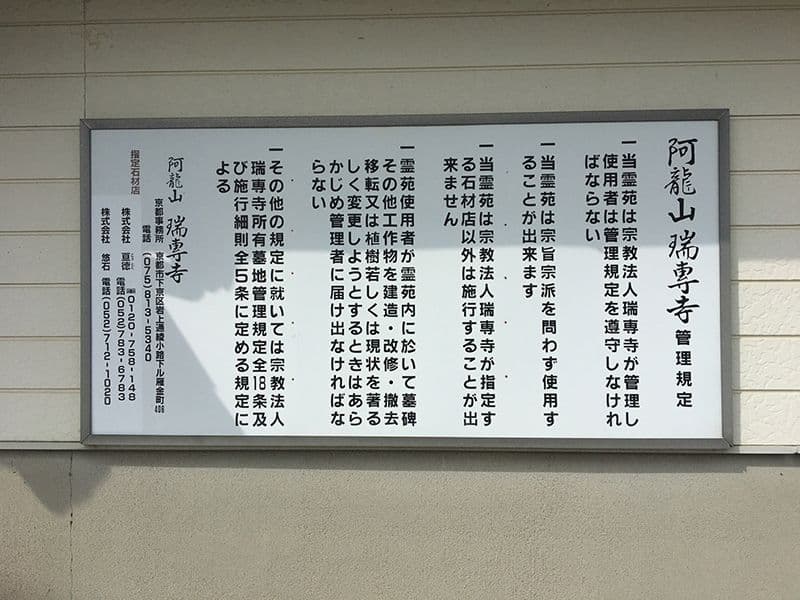 阿龍山 瑞專寺 管理規定
一当霊苑は宗教法人瑞専寺が管理し
使用者は管理規定を遵守しなけれ
ばならない
一当霊苑は宗旨宗派を問わず使用す
ることが出来ます
一当霊苑は宗教法人瑞専寺が指定す
る石材店以外は施行することが出
来ません
一霊苑使用者が霊苑内に於いて墓碑
その他工作物を建造・改修・撤去
移転又は植樹若しくは現状を著る
しく変更しようとするときはあら
かじめ管理者に届け出なければな
らない
一その他の規定に就いては宗教法人
瑞専寺所有墓地管理規定全18条及
び施行細則全5条に定める規定に
よる
阿龍山 瑞專寺
京都事務所 京都市下京区岩上通綾小路下ル雁金町406
電話 (075)813-5340
指定石材店
株式会社 亘徳 0120-758-148
電話(052)783-6783
株式会社 悠石 電話(052)712-1020